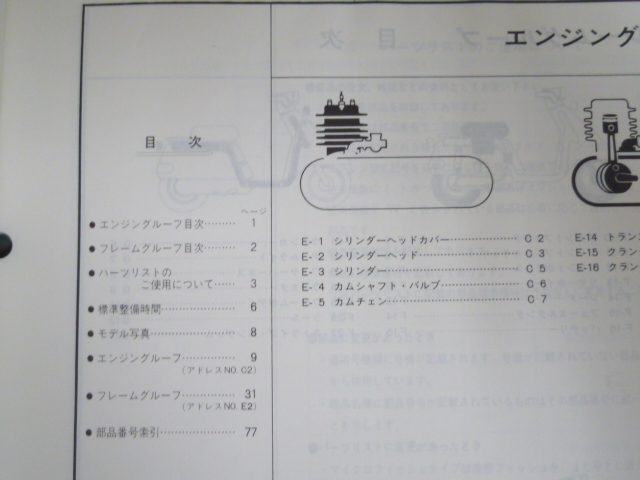 エンジング
目　次
ページ
●エンジングループ目次……… 1
●フレームグループ目次……… 2
●パーツリストの
ご使用について…… 3
●標準整備時間…………… 6
●モデル写真……………… 8
●エンジングループ………… 9
(アドレスNO. C2)
●フレームグループ………… 31
(アドレスNO. E2)
●部品番号索引…………… 77
E- 1 シリンダーヘッドカバー……………… C 2
E- 2 シリンダーヘッド……………………… C 3
E- 3 シリンダー……………………………… C 5
E- 4 カムシャフト・バルブ………………… C 6
E- 5 カムチェン……………………………… C 7
E-14 トラン
E-15 クラン
E-16 クラン